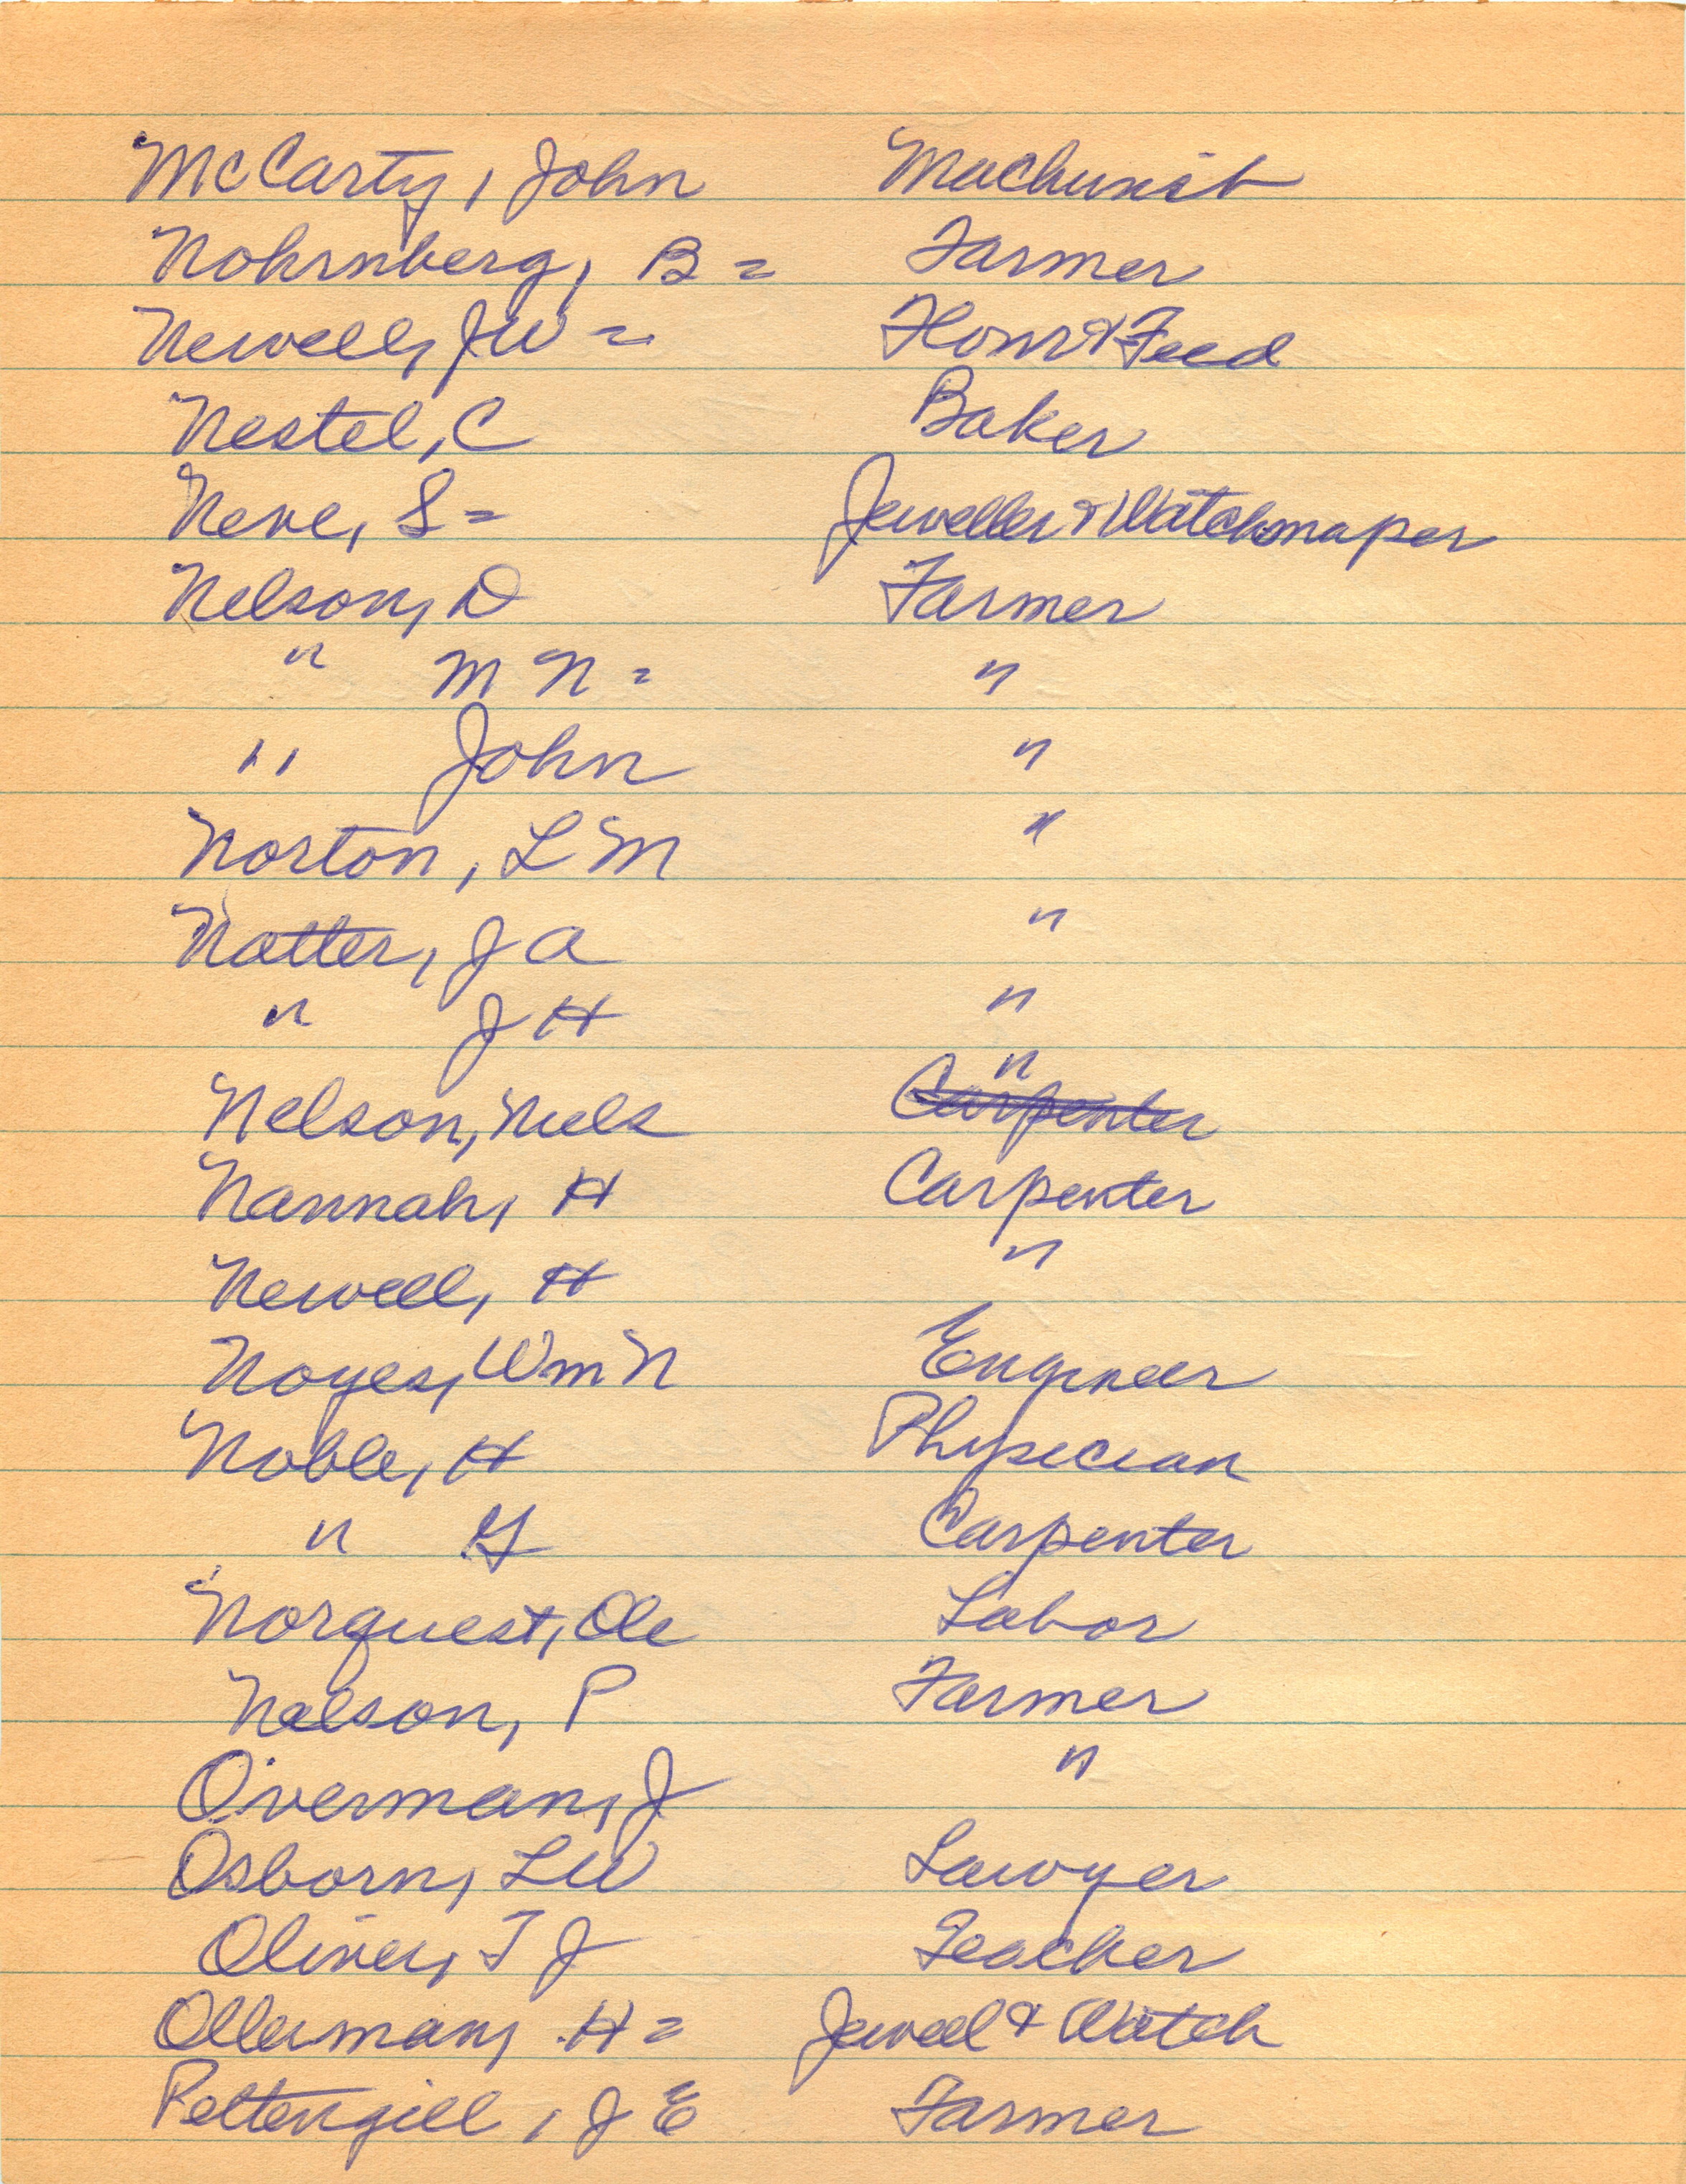 McCarty, John Machinist
Nohrnberg, B = Farmer
Newell, JW = Flour & Feed
Nestel, C Baker
Neve, S = Jeweller & Watchmaper
Nelson, D Farmer
" M N = "
" John "
Norton, L M "
Natter, J A "
" J H "
"
Nelson, Niels Carpenter
Nannah, H Carpenter
Newell, H "
Noyes, Wm N Engineer
Noble, H Physician
" G Carpenter
Norquest, Ole Labor
Nelson, P Farmer
Overman, J "
Osborn, LW Lawyer
Oliver, T J Teacher
Ollerman, H = Jewel & Watch
Pettengill, J E Farmer